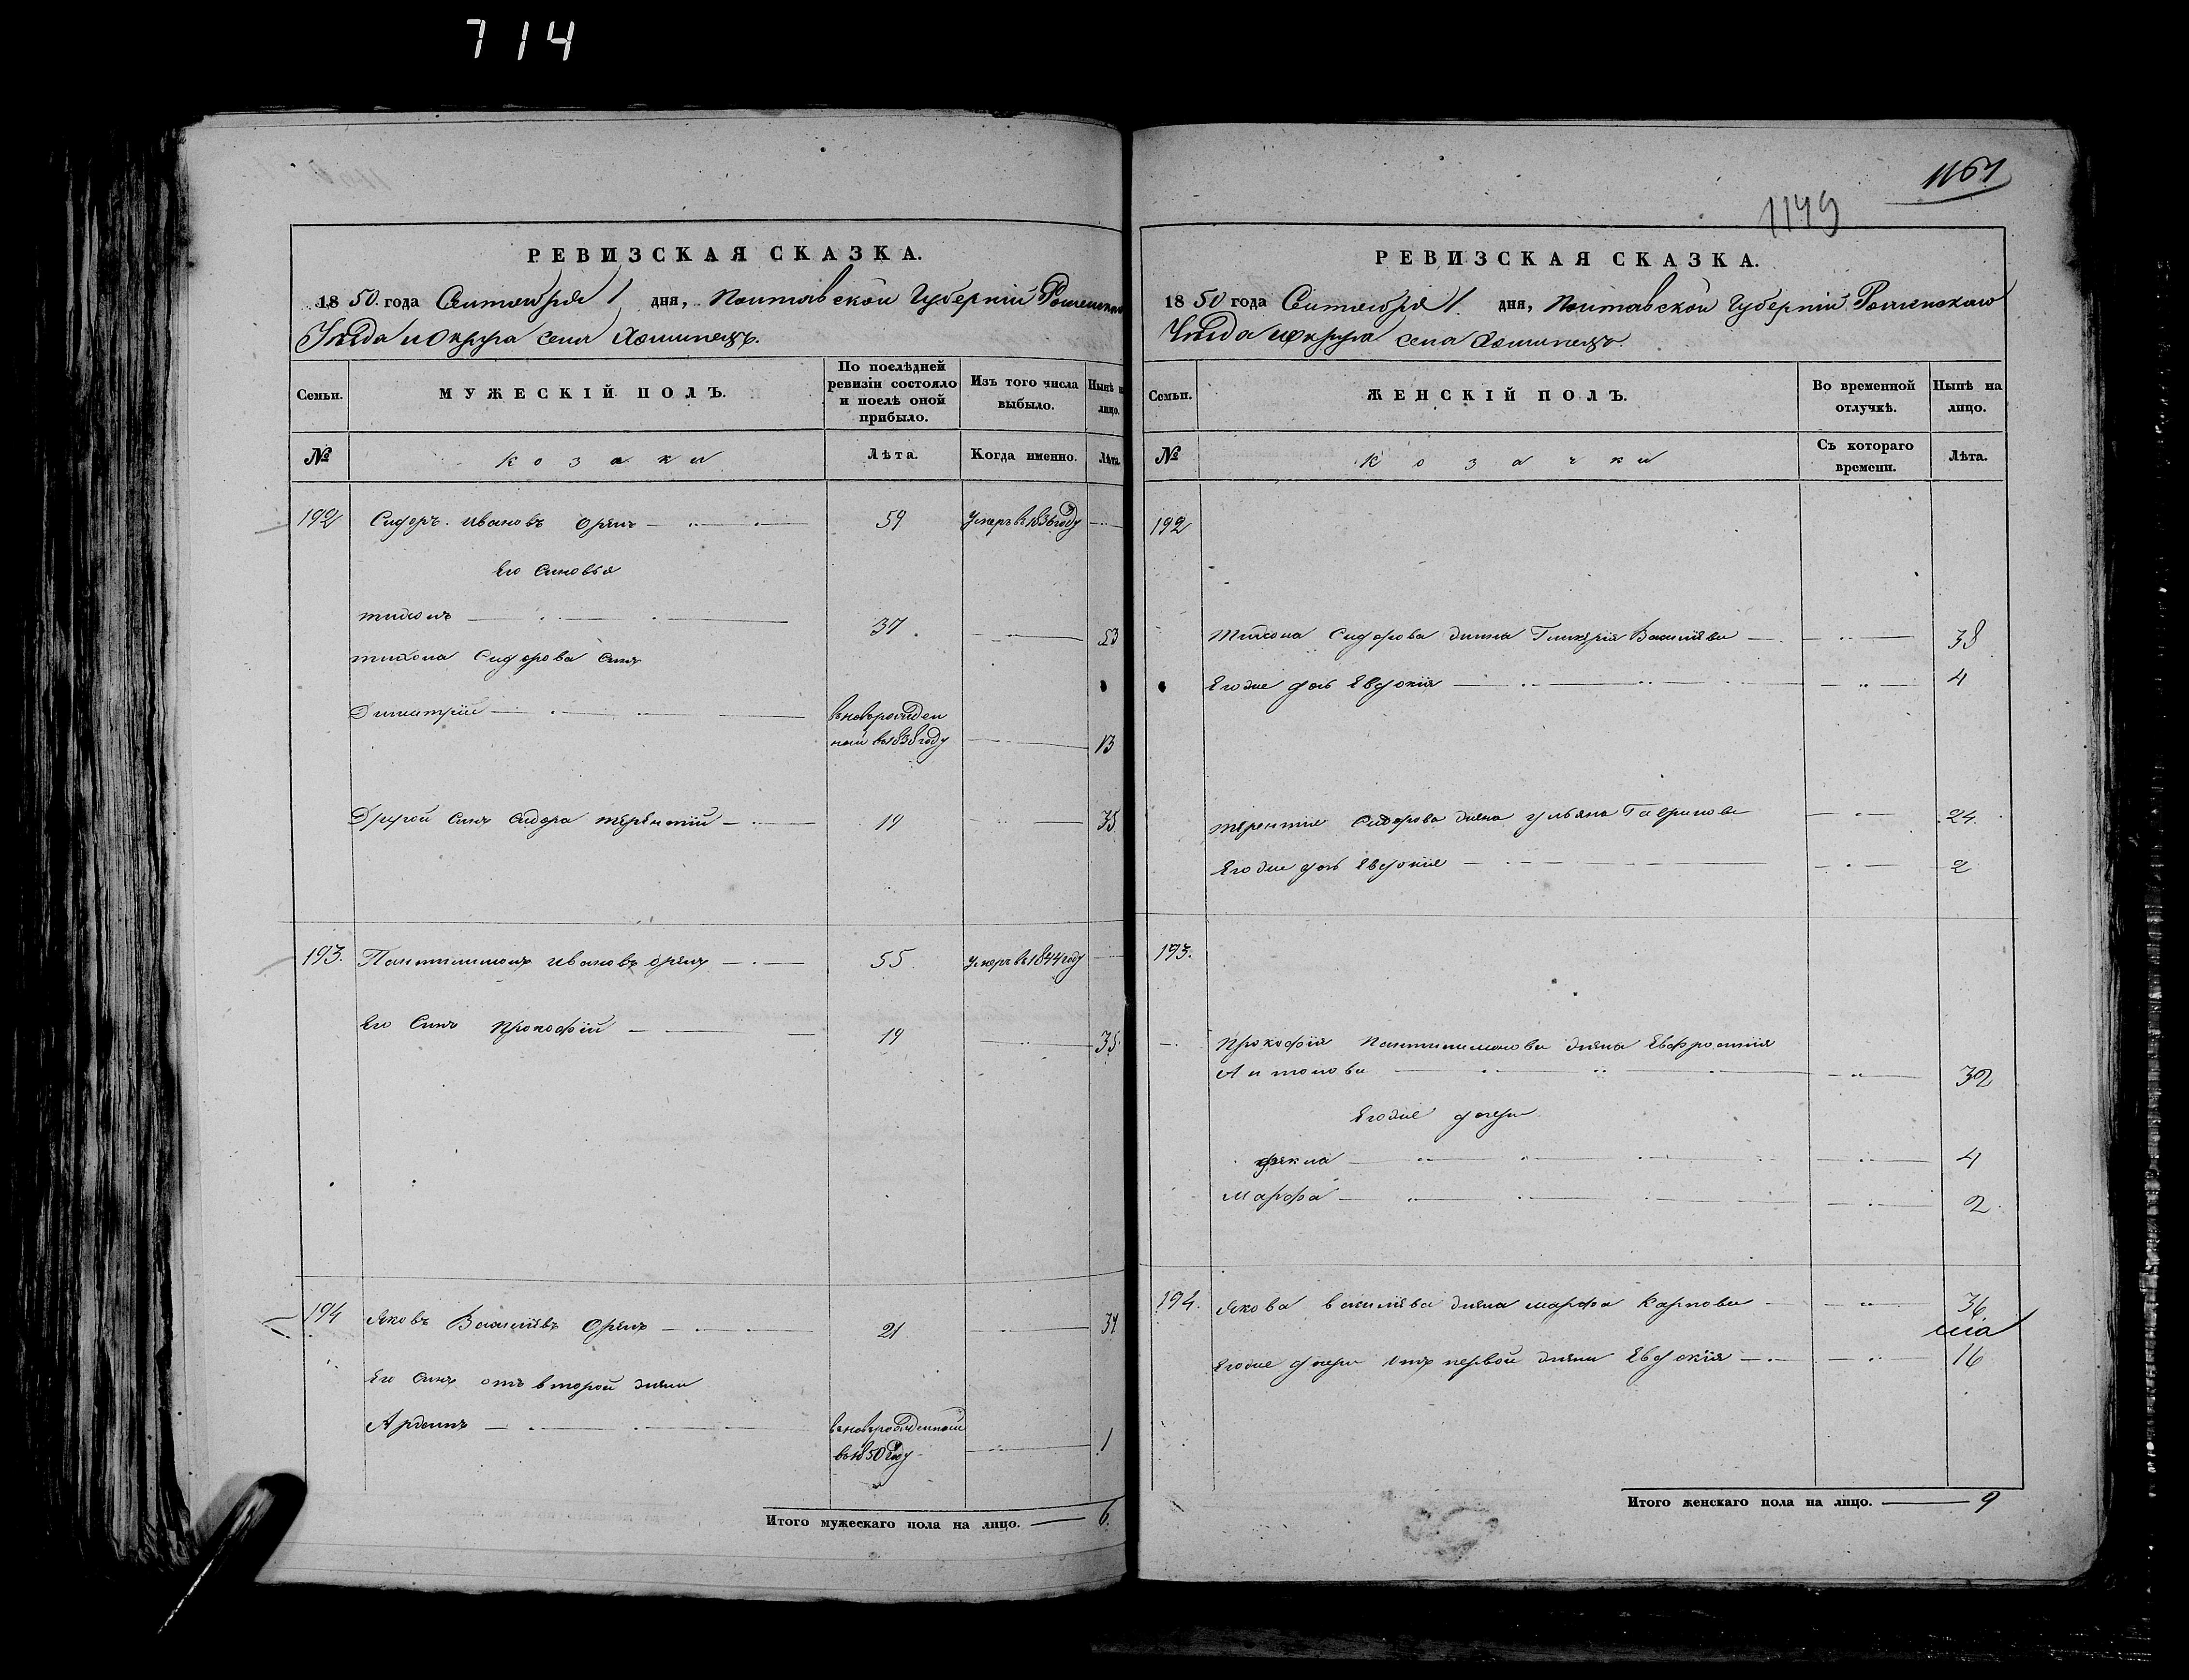 714
РЕВИЗСКАЯ СКАЗКА.
1850 года Сентября 1 дня, Полтавской Губерніи Роменскаго
Уѣзда и Округа села
Семьи.
МУЖЕСКІЙ ПОЛЪ.
По послѣдней ревизіи состояло и послѣ оной прибыло.
Изъ того числа выбыло.
Нынѣ н лицо.
№
козаки
Лѣта.
Когда именно.
Лѣта.
192 Сидоръ Ивановъ 59 Умеръ в 1836 году
Его Синовья
тихонъ 37 53
тихона Сидорова Синъ
Димитрій 
ной въ 1838 году 13
Другой Синъ Сидора терентій 19 35
193. Пантилимонъ Ивановъ 55 Умеръ въ 1844 году
Его Синъ Прокофій 19 35
194 Яковъ Василіевъ 21 37
Его Синъ отъ второй жени
въ 1850 году 1
Итого мужескаго пола на лицо. 6.
1161
1149
РЕВИЗСКАЯ СКАЗКА.
1850 года Сентября 1. дня, Полтавской Губерніи Роменскаго
Уѣзда и Округа села
Семьи.
ЖЕНСКІЙ ПОЛЪ.
Во временной отлучкѣ.
Нынѣ на лицо.
№
козачки
Съ котораго времени.
Лѣта.
192
Тихона Сидорова жина Гликерія Василіева 38
Егоже Евдокія 4
терентія Сидорова жена ульяна Гаврилова 24.
Егоже Евдокія 2
193.
Прокофія Пантилимонова жена Евфросинія
Антонова 32
Егоже дочери
фекла 4
Марфа 2.
194. Якова Василіева жена марфа Карпова 36
Егоже дочери отъ первой жени Евдокія 16
Итого женскаго пола на лицо. 9